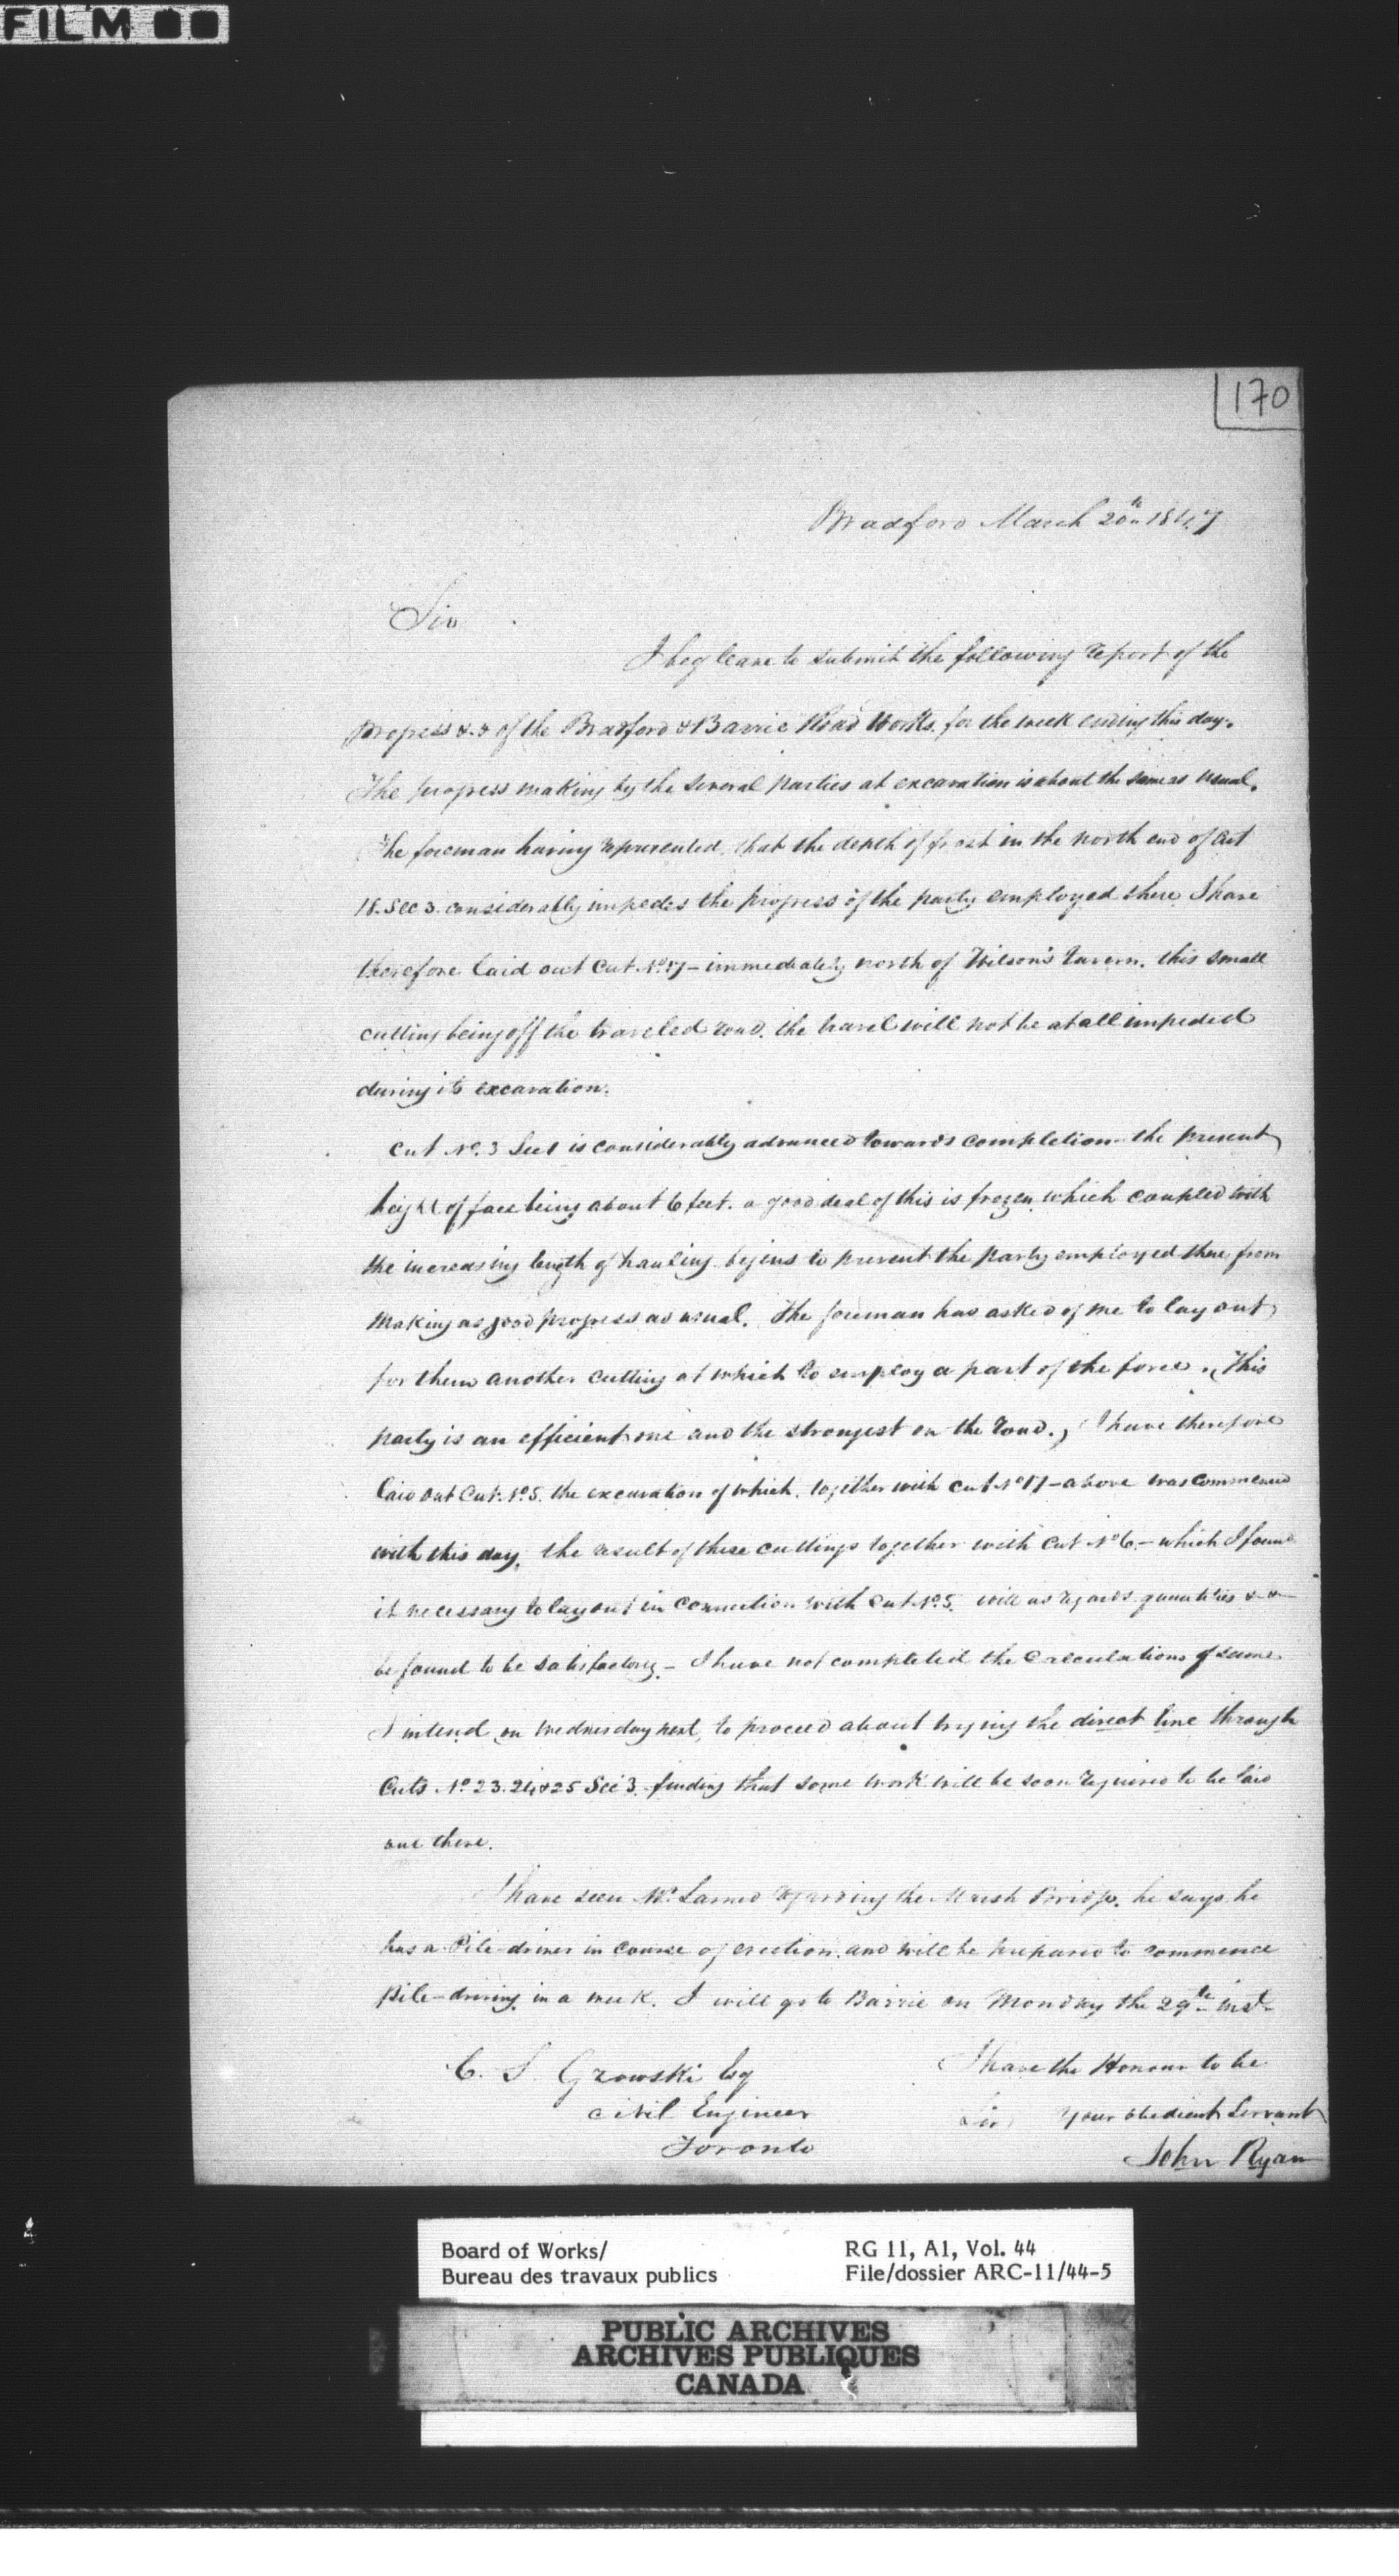 FILM
170
Bradford March 20th 1847
Sir
I beg leave to submit the following report of the
progress &.& of the Bradford & Barrie Road Works. for the week ending this day.
The progress making by the several parties at excavation is about the same as usual.
The foreman having represented, that the depth of frost in the north end of Cut
18. Sec 3. considerably impedes the progress of the party employed there I have
therefore laid out Cut No. 17 - immediately north of Wilson's Tavern. this small
cutting being off the traveled road. the travel will not be at all impeded
during its excavation.
Cut No. 3 Sec 1 is considerably advanced towards completion - the present
height of face being about 6 feet. a good deal of this is frozen, which coupled with
the increasing length of hauling begins to prevent the party employed there from
making as good progress as usual. The foreman has asked of me to lay out
for them another cutting at which to employ a part of the force. (This
party is an efficient one and the strongest on the road.) I have therefore
laid out Cut. No. 5. the excavation of which, together with cut No. 17 - above was commenced
with this day. the result of these cuttings together with Cut No. 6. - which I found
it necessary to lay out in connection with Cut No. 5. will as regards quantities &.&
be found to be satisfactory - I have not completed the calculations of same
I intend on Wednesday next, to proceed about trying the direct line through
Cuts No. 23. 24 & 25 Sec 3. finding that some work will be soon required to be laid
out there.
I have seen Mr. regarding the Marsh Bridge. he says he
has a Pile-driver in course of erection. and will be prepared to commence
Pile-driving in a week. I will go to Barrie on Monday the 29th inst
C. S. Gzowski Esq
Civil Engineer
Toronto
I have the Honour to be
Sir, your obedient Servant
John Ryan
Board of Works/
Bureau des travaux publics
RG 11, A1, Vol. 44
File/dossier ARC-11/44-5
PUBLIC ARCHIVES
ARCHIVES PUBLIQUES
CANADA